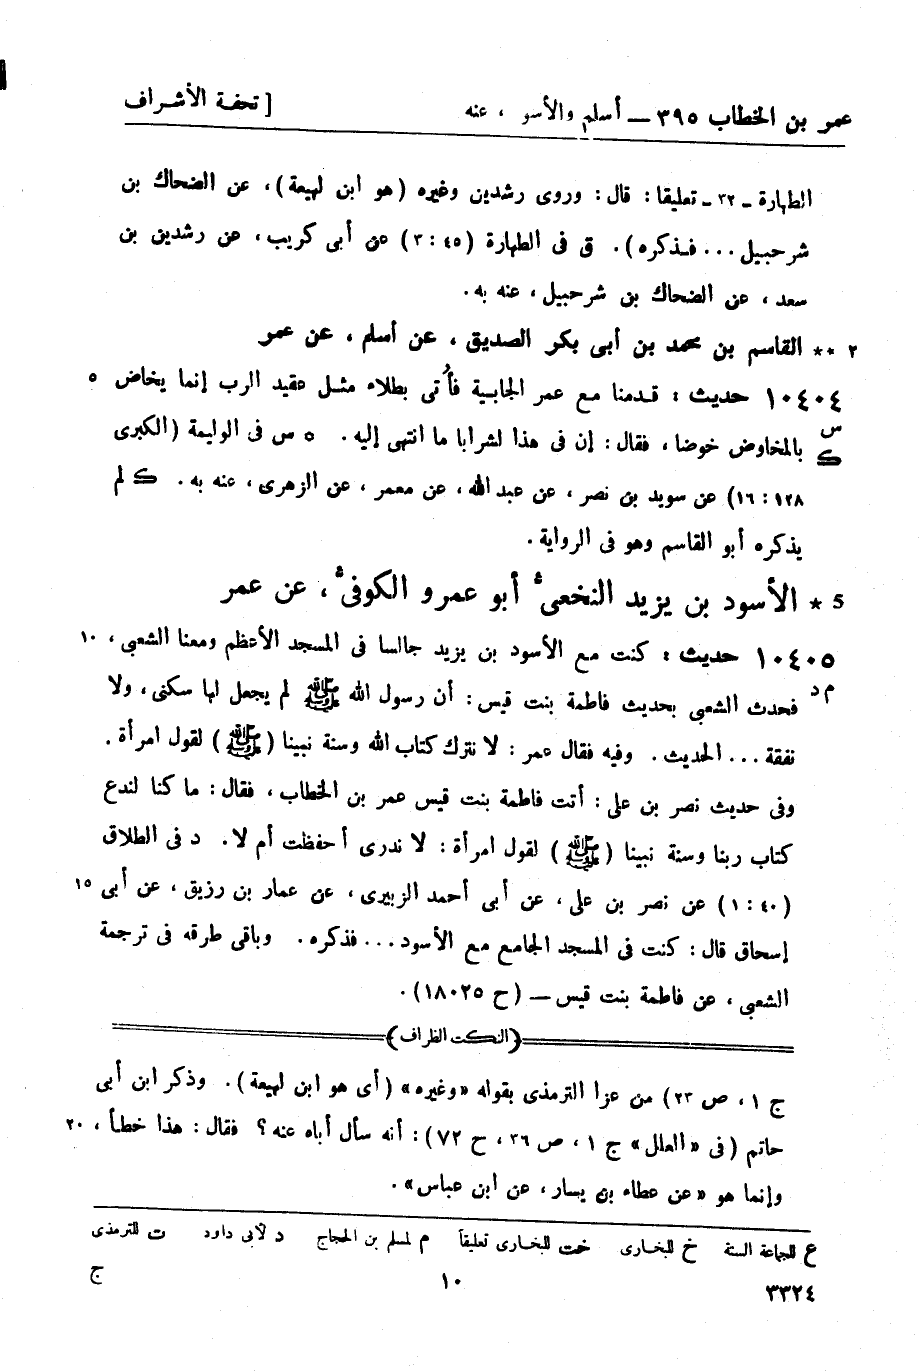 عمر بن الخطاب ٣٩٥ — أسلم والأسو ، عنه [ تحفة الأشراف
الطهارة - ٣٢ - تعليقا : قال : وروى رشدين وغيره (هو ابن لهيعة) ، عن الضحاك بن
شرحبيل . . . فذكره) . ق فى الطهارة (٤٥ : ٣) عن أبى كريب ، عن رشدين بن
سعد ، عن الضحاك بن شرحبيل ، عنه به .
٢ ** القاسم بن محمد بن أبى بكر الصديق ، عن أسلم ، عن عمر
١٠٤٠٤ حديث : قدمنا مع عمر الجابية فأُتى بطلاء مثل عقيد الرب إنما يخاض ٥
س بالمخاوض خوضا ، فقال : إن فى هذا لشرابا ما انتهى إليه . ٥ س فى الوليمة (الكبرى
ك ١٢٨ : ١٦) عن سويد بن نصر ، عن عبد الله ، عن معمر ، عن الزهرى ، عنه به . ك لم
يذكره أبو القاسم وهو فى الرواية .
5 * الأسود بن يزيد النخعى ع أبو عمرو الكوفى ع ، عن عمر
١٠٤٠٥ حديث : كنت مع الأسود بن يزيد جالسا فى المسجد الأعظم ومعنا الشعبى ، ١٠
م د فحدث الشعبى بحديث فاطمة بنت قيس : أن رسول الله ﷺ لم يجعل لها سكنى ، ولا
نفقة . . . الحديث . وفيه فقال عمر : لا نترك كتاب الله وسنة نبينا (ﷺ) لقول امرأة .
وفى حديث نصر بن على : أتت فاطمة بنت قيس عمر بن الخطاب ، فقال : ما كنا لندع
كتاب ربنا وسنة نبينا (ﷺ) لقول امرأة : لا ندرى أحفظت أم لا . د فى الطلاق
(٤٠ : ١) عن نصر بن على ، عن أبى أحمد الزبيرى ، عن عمار بن رزيق ، عن أبى ١٥
إسحاق قال : كنت فى المسجد الجامع مع الأسود . . . فذكره . وباقى طرقه فى ترجمة
الشعبى ، عن فاطمة بنت قيس — (ح ١٨٠٢٥) .
(النكت الظراف)
ج ١ ، ص ٢٣) من عزا الترمذى بقوله «وغيره» (أى هو ابن لهيعة) . وذكر ابن أبى
حاتم (فى «العلل» ج ١ ، ص ٣٦ ، ح ٧٢) : أنه سأل أباه عنه ؟ فقال : هذا خطأ ، ٢٠
وإنما هو «عن عطاء بن يسار ، عن ابن عباس» .
ع للجماعة الستة خ للبخارى خت للبخارى تعليقاً م لمسلم بن الحجاج د لأبى داود ت للترمذى
٣٣٢٤ ١٠ ج